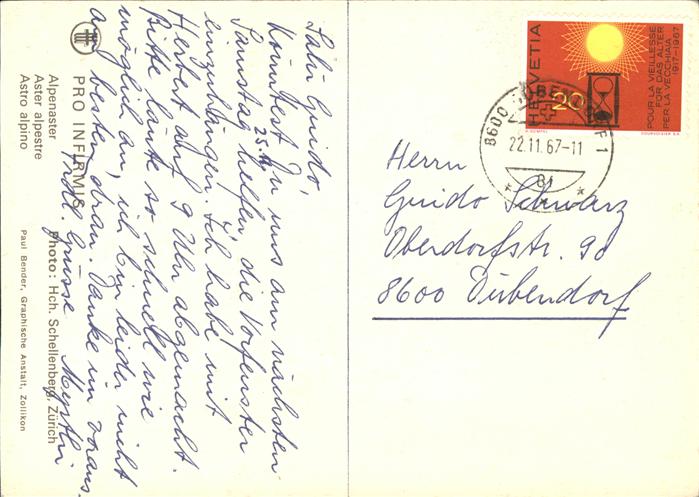 Salü Guido,
Könntest Du uns am nächsten
25.11.
Samstag helfen, die Vorfenster
einzuhängen. Ich habe mit
Herbert auf 9 Uhr abgemacht.
Bitte läute so schnell wie
möglich an, ich bin leider nicht
am besten dran. Danke im voraus.
Grüsse
PRO INFIRMIS
Alpenaster
Aster alpestre
Astro alpino
Photo: Hch. Schellenberg, Zürich
Paul Bender, Graphische Anstalt, Zollikon
HELVETIA
20
POUR LA VIEILLESSE
FÜR DAS ALTER
PER LA VECCHIAIA
1917-1967
COURVOISIER S.A.
8600 DÜBENDORF 1
22.11.67-11
Herrn
Guido Schwarz
Oberdorfstr. 90
8600 Dübendorf